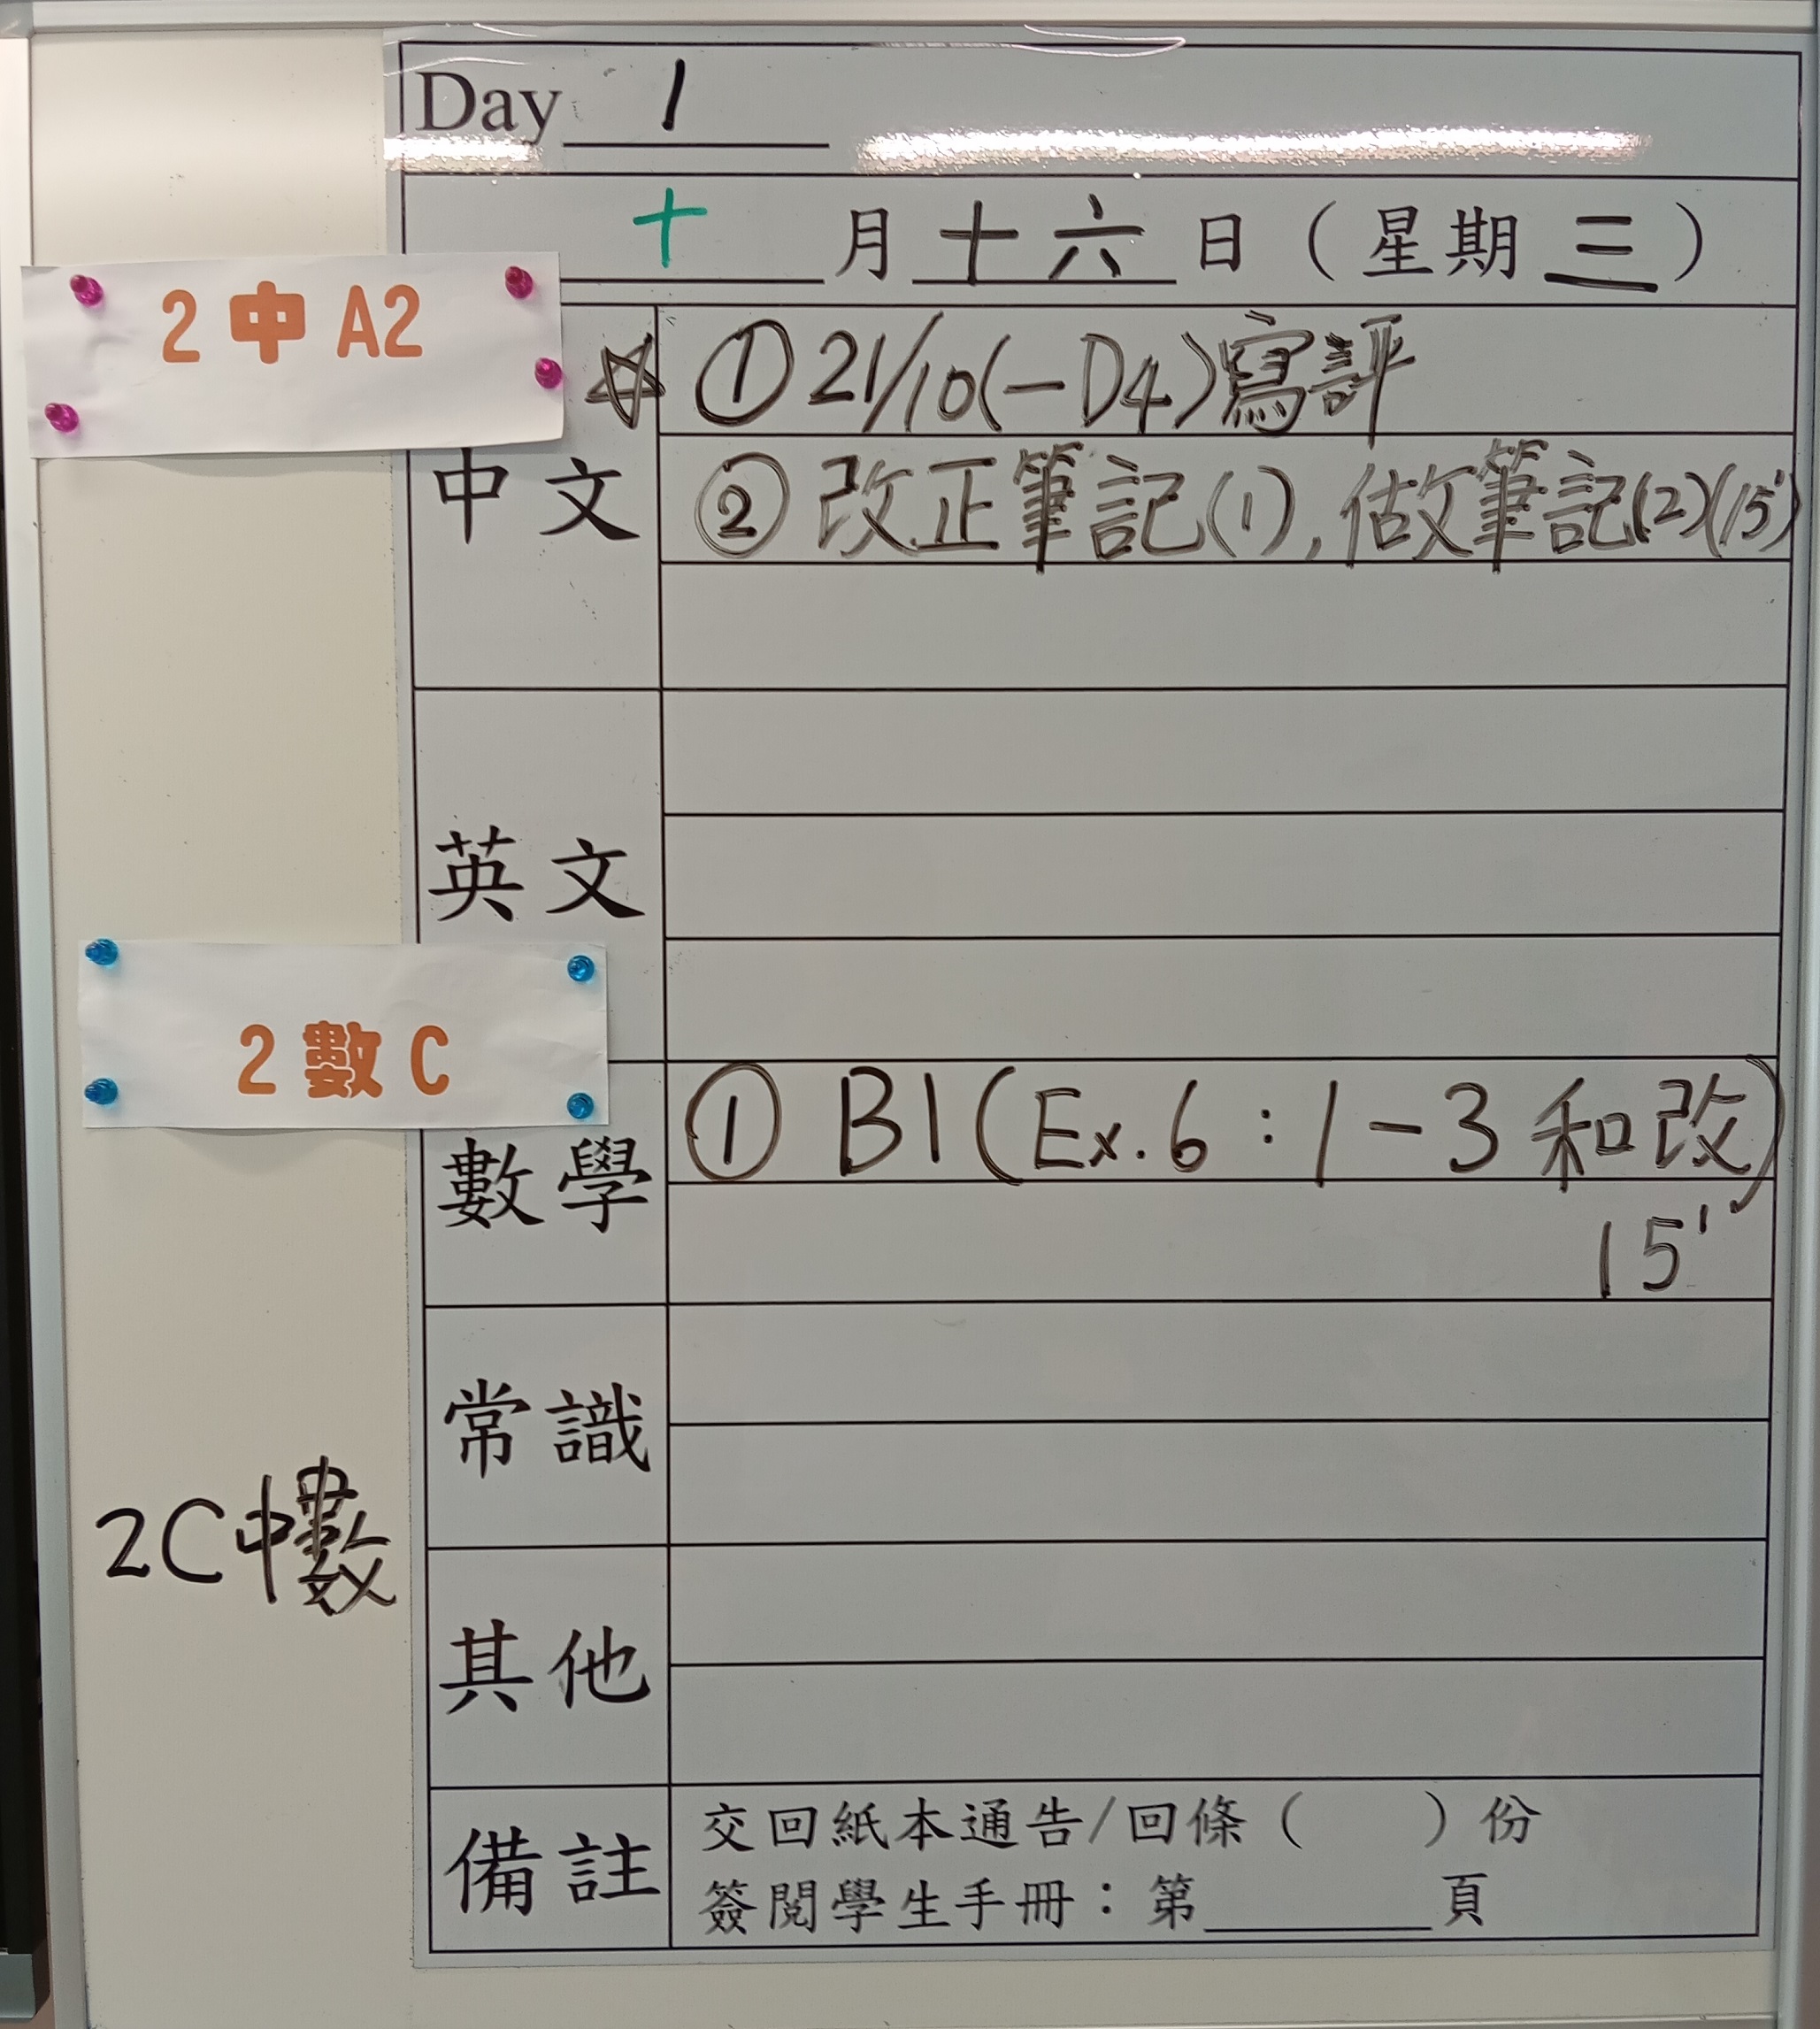 Day 1
十 月 十六 日 ( 星期 三 )
2 中 A2
☆ ① 21/10(一D4)寫評
中文
② 改正筆記(1), 做筆記(2)(15')
英文
2 數 C
① B1(Ex.6 : 1-3 和改)
15'
數學
常識
2C中數
其他
備註
交回紙本通告/回條 ( ) 份
簽閱學生手冊：第____頁